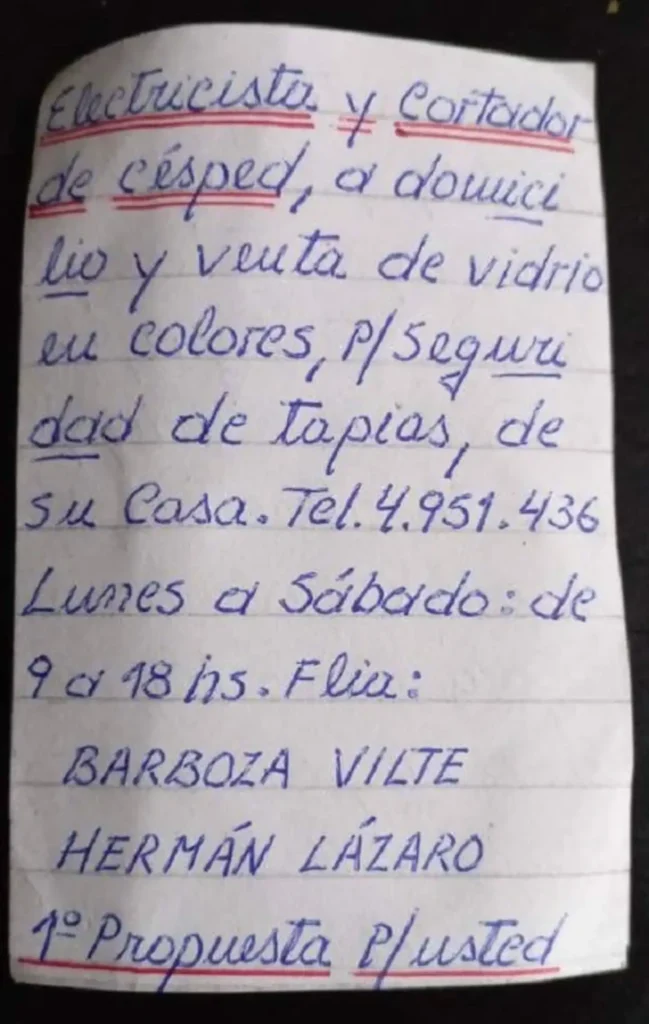 Electricista y Cortador
de césped, a domici
lio y venta de vidrio
en colores, P/Seguri
dad de tapias, de
su Casa. Tel. 4.951.436
Lunes a Sábado: de
9 a 18 hs. Flia:
BARBOZA VILTE
HERMÁN LÁZARO
1º Propuesta P/usted